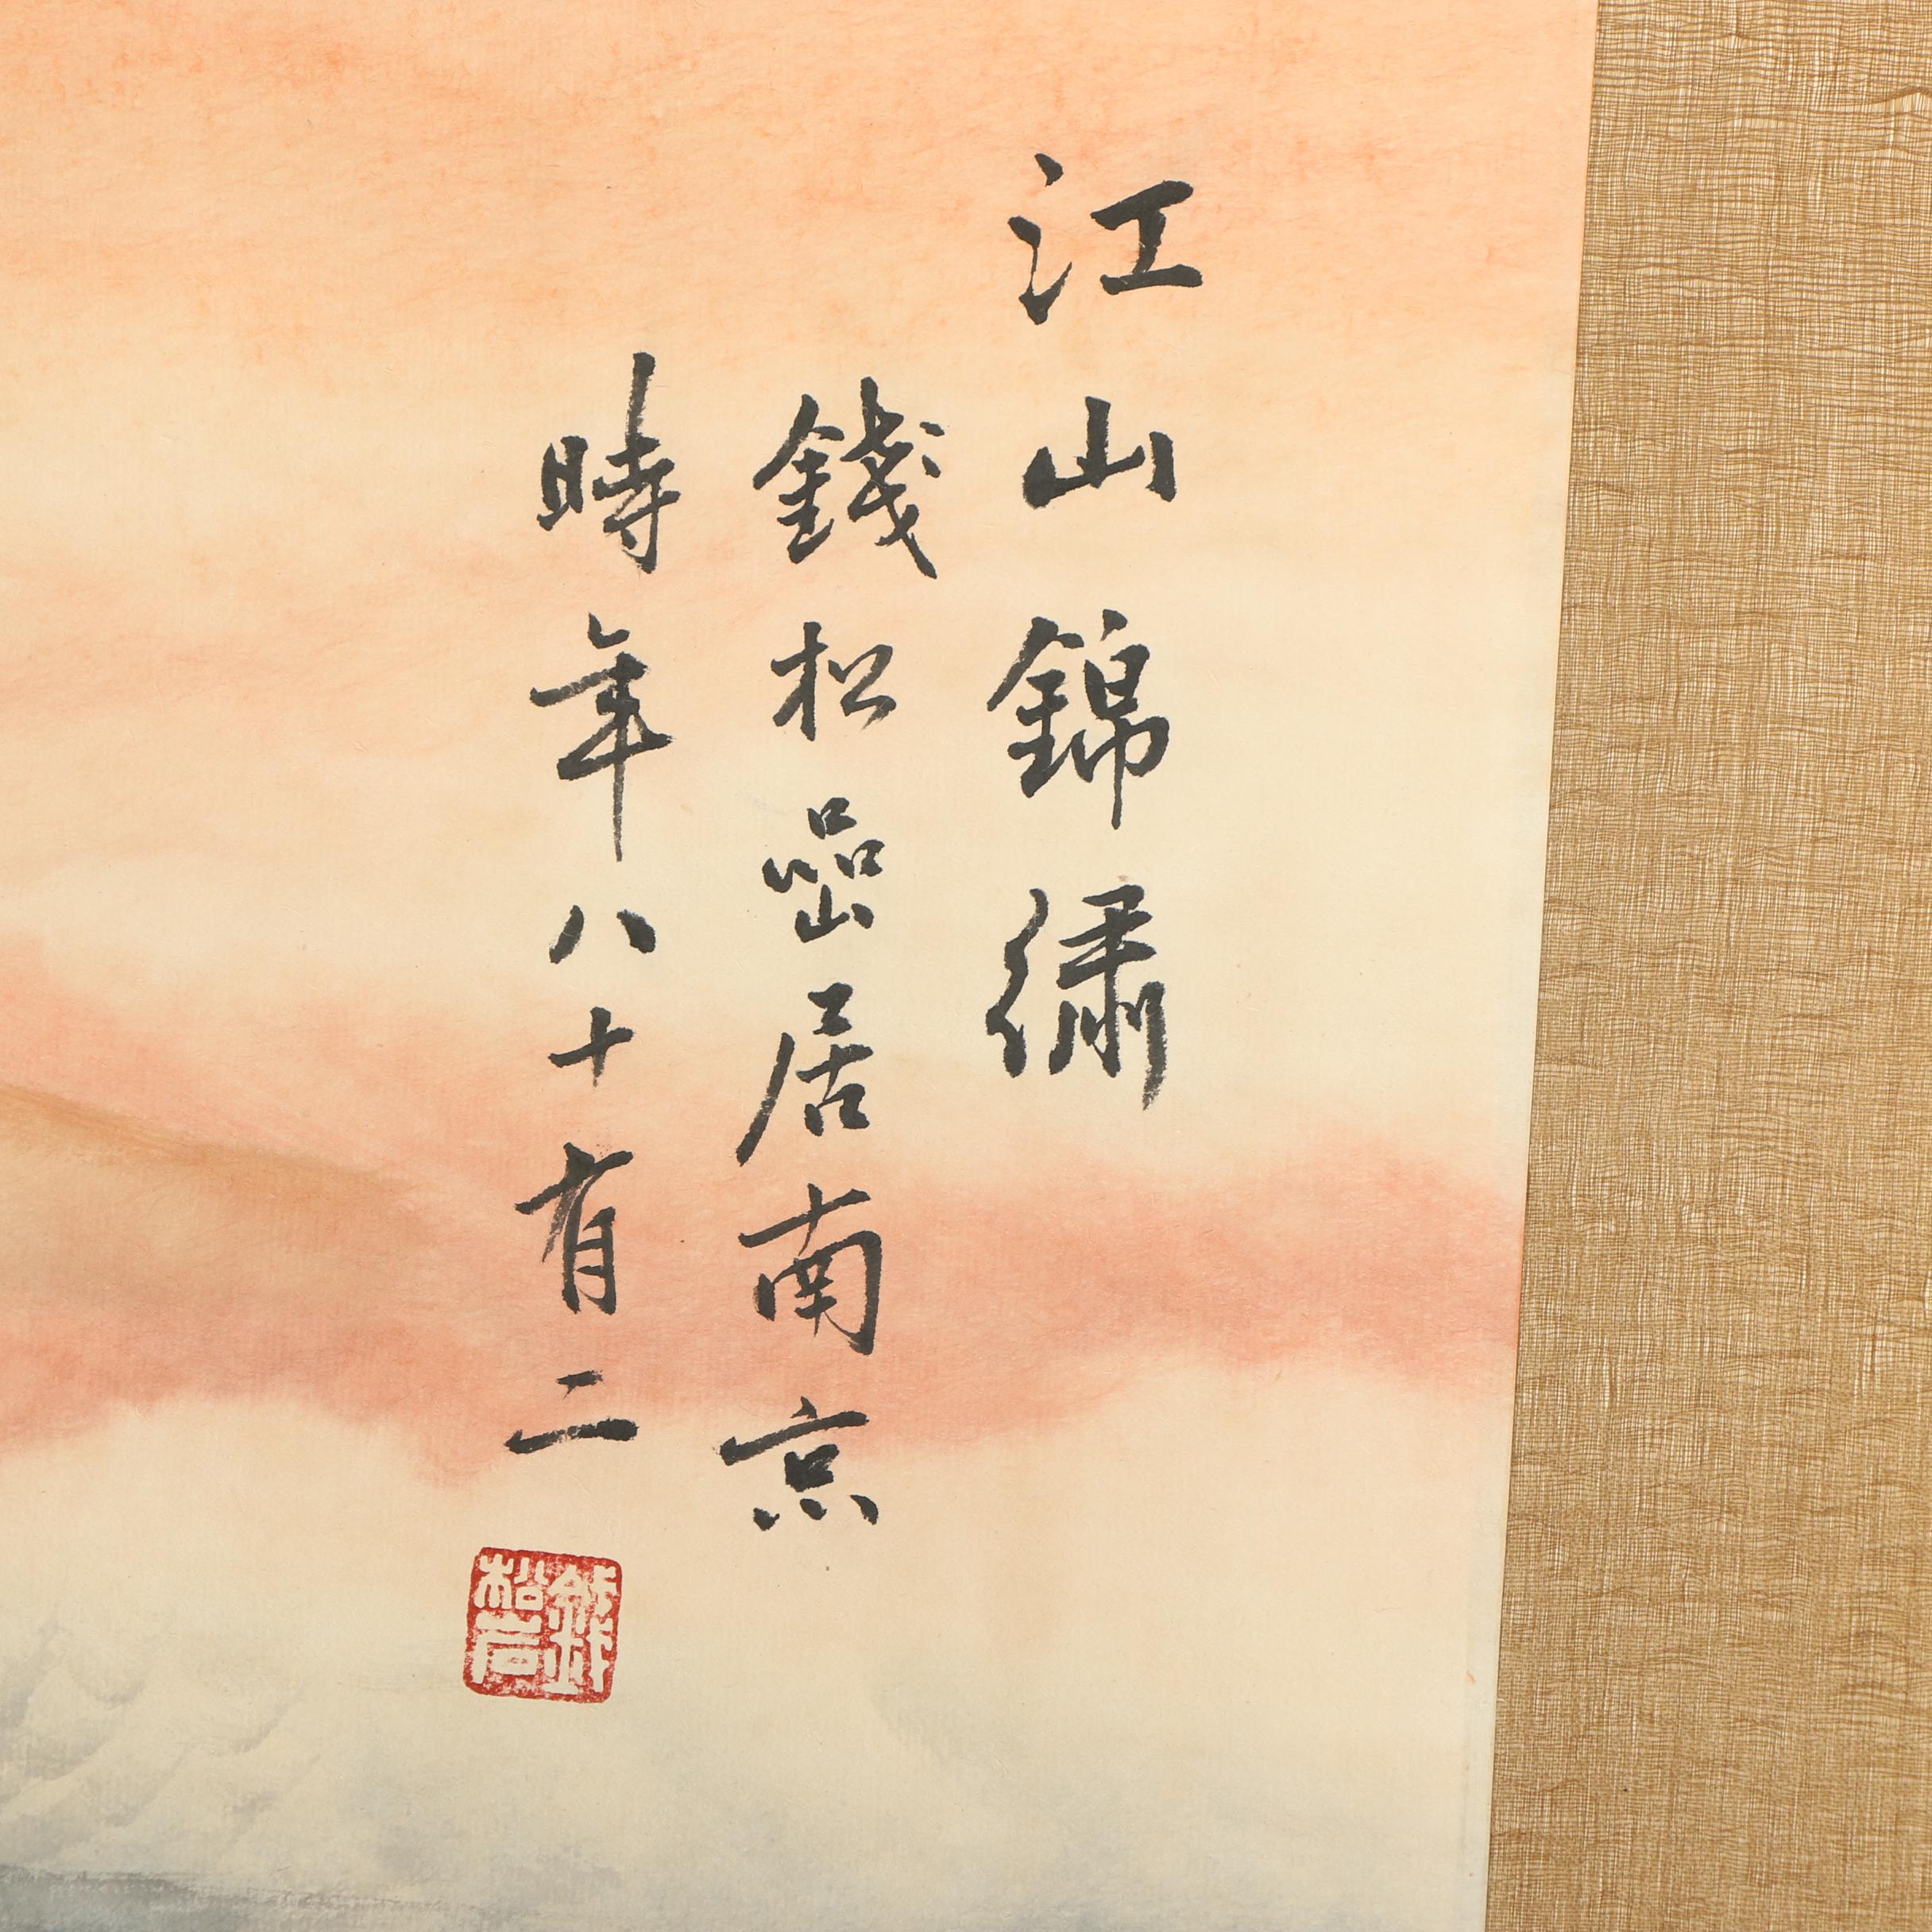 江山錦繡
錢松嵒居南京
時年八十有二
錢松嵒